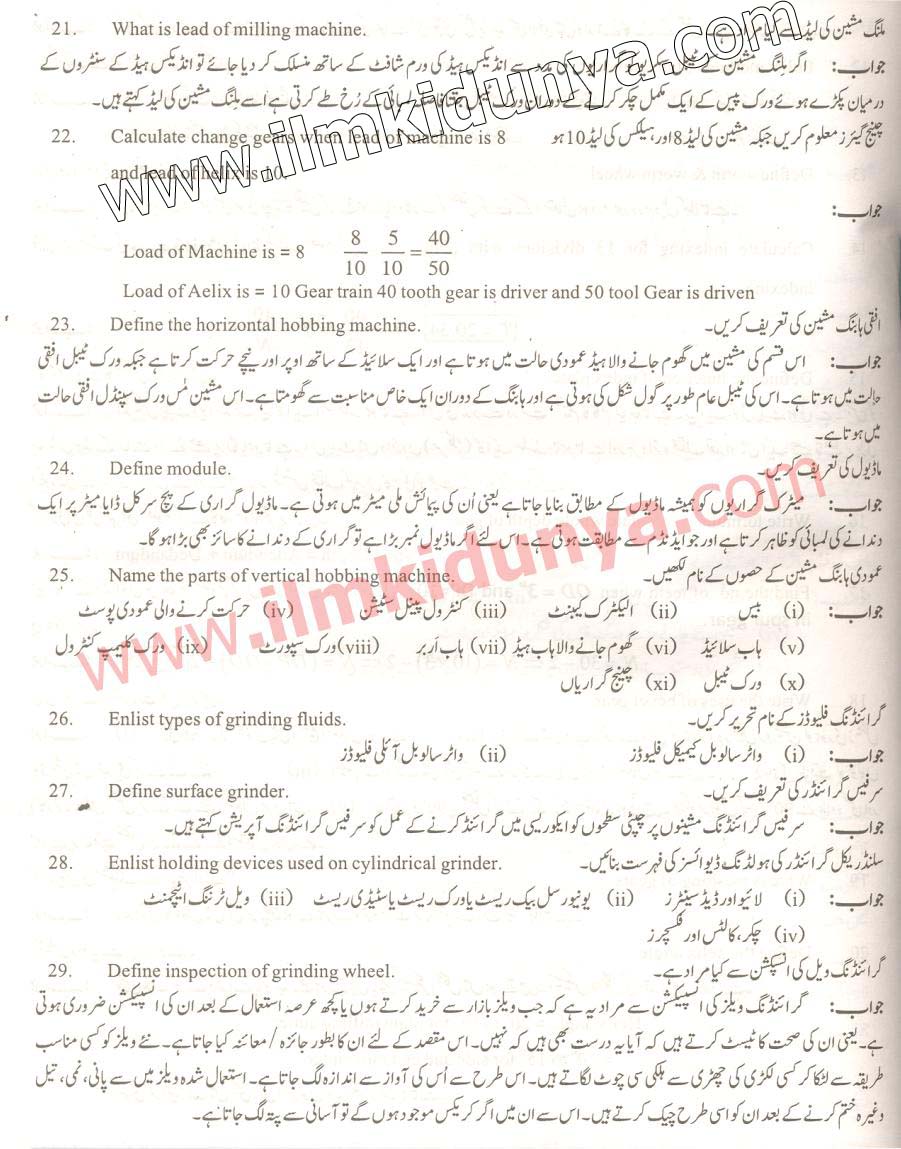 21. What is lead of milling machine. ملنگ مشین کی لیڈ سے کیا مراد ہے۔
جواب: اگر ملنگ مشین کے ٹیبل سکریو کو گراریوں کی مدد سے انڈیکس ہیڈ کی ورم شافٹ کے ساتھ منسلک کر دیا جائے تو انڈیکس ہیڈ کے سنٹروں کے
درمیان پکڑے ہوئے ورک پیس کے ایک مکمل چکر کرنے کے دوران ورک ٹیبل جتنا فاصلہ لمبائی کے رُخ طے کرتی ہے اُسے ملنگ مشین کی لیڈ کہتے ہیں۔
22. Calculate change gears when lead of machine is 8 چینج گیئرز معلوم کریں جبکہ مشین کی لیڈ 8 اور ہیلکس کی لیڈ 10 ہو
and lead of helix is 10.
جواب:
Load of Machine is = 8 8/10 5/10 = 40/50
Load of Aelix is = 10 Gear train 40 tooth gear is driver and 50 tool Gear is driven
23. Define the horizontal hobbing machine. افقی ہابنگ مشین کی تعریف کریں۔
جواب: اس قسم کی مشین میں گھوم جانے والا ہیڈ عمودی حالت میں ہوتا ہے اور ایک سلائیڈ کے ساتھ اوپر اور نیچے حرکت کرتا ہے جبکہ ورک ٹیبل افقی
حالت میں ہوتا ہے۔ اس کی ٹیبل عام طور پر گول شکل کی ہوتی ہے اور ہابنگ کے دوران ایک خاص مناسبت سے گھومتا ہے۔ اس مشین مُس ورک سپنڈل افقی حالت
میں ہوتا ہے۔
24. Define module. ماڈیول کی تعریف کریں۔
جواب: میٹرک گراریوں کو ہمیشہ ماڈیول کے مطابق بنایا جاتا ہے یعنی اُن کی پیمائش ملی میٹر میں ہوتی ہے۔ ماڈیول گراری کے پچ سرکل ڈایا میٹر پر ایک
دندانے کی لمبائی کو ظاہر کرتا ہے اور جو ایڈنڈم سے مطابقت ہوتی ہے۔ اس لئے اگر ماڈیول نمبر بڑا ہے تو گراری کے دندانے کا سائز بھی بڑا ہو گا۔
25. Name the parts of vertical hobbing machine. عمودی ہابنگ مشین کے حصوں کے نام لکھیں۔
جواب: (i) بیس (ii) الیکٹرک کیبنٹ (iii) کنٹرول پینل سٹیشن (iv) حرکت کرنے والی عمودی پوسٹ
(v) ہاب سلائیڈ (vi) گھوم جانے والا ہاب ہیڈ (vii) ہاب آربر (viii) ورک سپورٹ (ix) ورک کلیمپ کنٹرول
(x) ورک ٹیبل (xi) چینج گراریاں
26. Enlist types of grinding fluids. گرائنڈنگ فلیوڈز کے نام تحریر کریں۔
جواب: (i) واٹر سالوبل کیمیکل فلیوڈز (ii) واٹر سالوبل آئلی فلیوڈز
27. Define surface grinder. سرفیس گرائنڈر کی تعریف کریں۔
جواب: سرفیس گرائنڈنگ مشینوں پر چپٹی سطحوں کو ایکوریسی میں گرائنڈ کرنے کے عمل کو سرفیس گرائنڈنگ آپریشن کہتے ہیں۔
28. Enlist holding devices used on cylindrical grinder. سلنڈریکل گرائنڈر کی ہولڈنگ ڈیوائسز کی فہرست بنائیں۔
جواب: (i) لائیو اور ڈیڈ سینٹرز (ii) یونیورسل بیک ریسٹ یا ورک ریسٹ یا سٹیڈی ریسٹ (iii) ویل ٹرننگ اٹیچمنٹ
(iv) چکر، کالٹس اور فکسچرز
29. Define inspection of grinding wheel. گرائنڈنگ ویل کی انسپکشن سے کیا مراد ہے۔
جواب: گرائنڈنگ ویلز کی انسپیکشن سے مراد یہ ہے کہ جب ویلز بازار سے خرید کرتے ہوں یا کچھ عرصہ استعمال کے بعد ان کی انسپیکشن ضروری ہوتی
ہے۔ یعنی ان کی صحت کا ٹیسٹ کرتے ہیں کہ آیا یہ درست بھی ہیں کہ نہیں۔ اس مقصد کے لئے ان کا بطور جائزہ / معائنہ کیا جاتا ہے۔ نئے ویلز کو کسی مناسب
طریقہ سے لٹکا کر کسی لکڑی کی چھڑی سے ہلکی سی چوٹ لگاتے ہیں۔ اس طرح سے اُس کی آواز سے اندازہ لگ جاتا ہے۔ استعمال شدہ ویلز میں سے پانی، نمی، تیل
وغیرہ ختم کرنے کے بعد ان کو اسی طرح چیک کرتے ہیں۔ اس سے ان میں اگر کریکس موجود ہوں گے تو آسانی سے پتہ لگ جاتا ہے۔
www.ilmkidunya.com
www.ilmkidunya.com